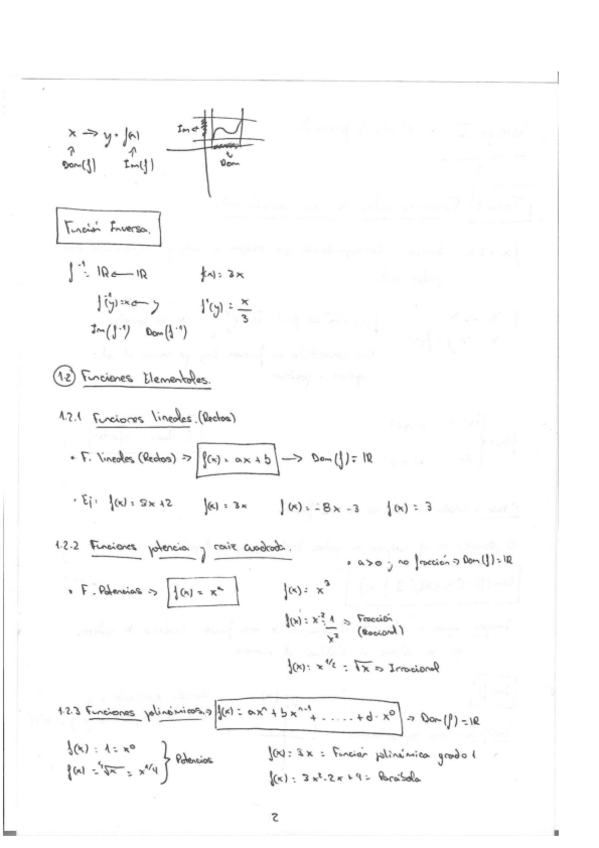 x → y = f(x)
↑ ↑
Dom(f) Im(f)
Im
Dom
Función Inversa.
f⁻¹ = IR ← IR f(x) = 3x
f⁻¹(y) = x ← y f¹(y) = x/3
Im(f⁻¹) Dom(f⁻¹)
1.2 Funciones Elementales.
1.2.1 Funciones lineales. (Rectas)
• F. lineales (Rectas) ⇒ f(x) = ax + b → Dom(f) = IR
• Ej: f(x) = 5x+2 f(x) = 3x f(x) = -8x -3 f(x) = 3
1.2.2 Funciones potencia y raiz cuadrada.
• a>0 y no fracción ⇒ Dom(f) = IR
• F. Potencias ⇒ f(x) = xᵃ f(x) = x³
f(x) = x⁻² = 1/x² ⇒ Fracción (Racional)
f(x) = x^1/2 = √x ⇒ Irracional
1.2.3 Funciones polinómicas. ⇒ f(x) = axⁿ + bxⁿ⁻¹ + ...... + d · x⁰ ⇒ Dom(f) = IR
f(x) = 1 = x⁰ } Potencias f(x) = 3x = Función polinómica grado 1
f(x) = ⁴√x = x^1/4 f(x) = 3x² - 2x + 9 = Parábola
2